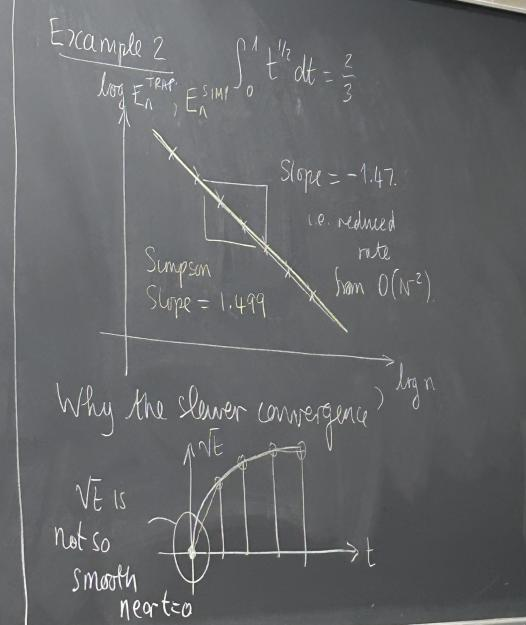 Example 2
∫₀¹ t^{1/2} dt = 2/3
log E_n^{TRAP}, E_n^{SIMP}
Slope = -1.47.
i.e. reduced
rate
from O(N^{-2})
Simpson
Slope = 1.499
log n
Why the slower convergence?
√t
√t is
not so
smooth
near t=0
t